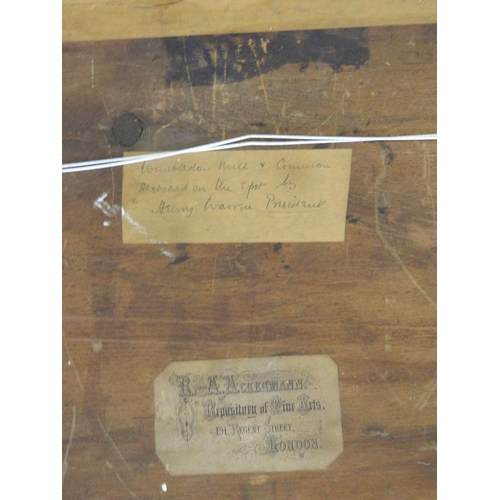 Wimbledon Mill & Common
Sketched on the spot by
Henry Warren President
R. A. Ackermann's
Repository of Fine Arts,
191, Regent Street,
London.